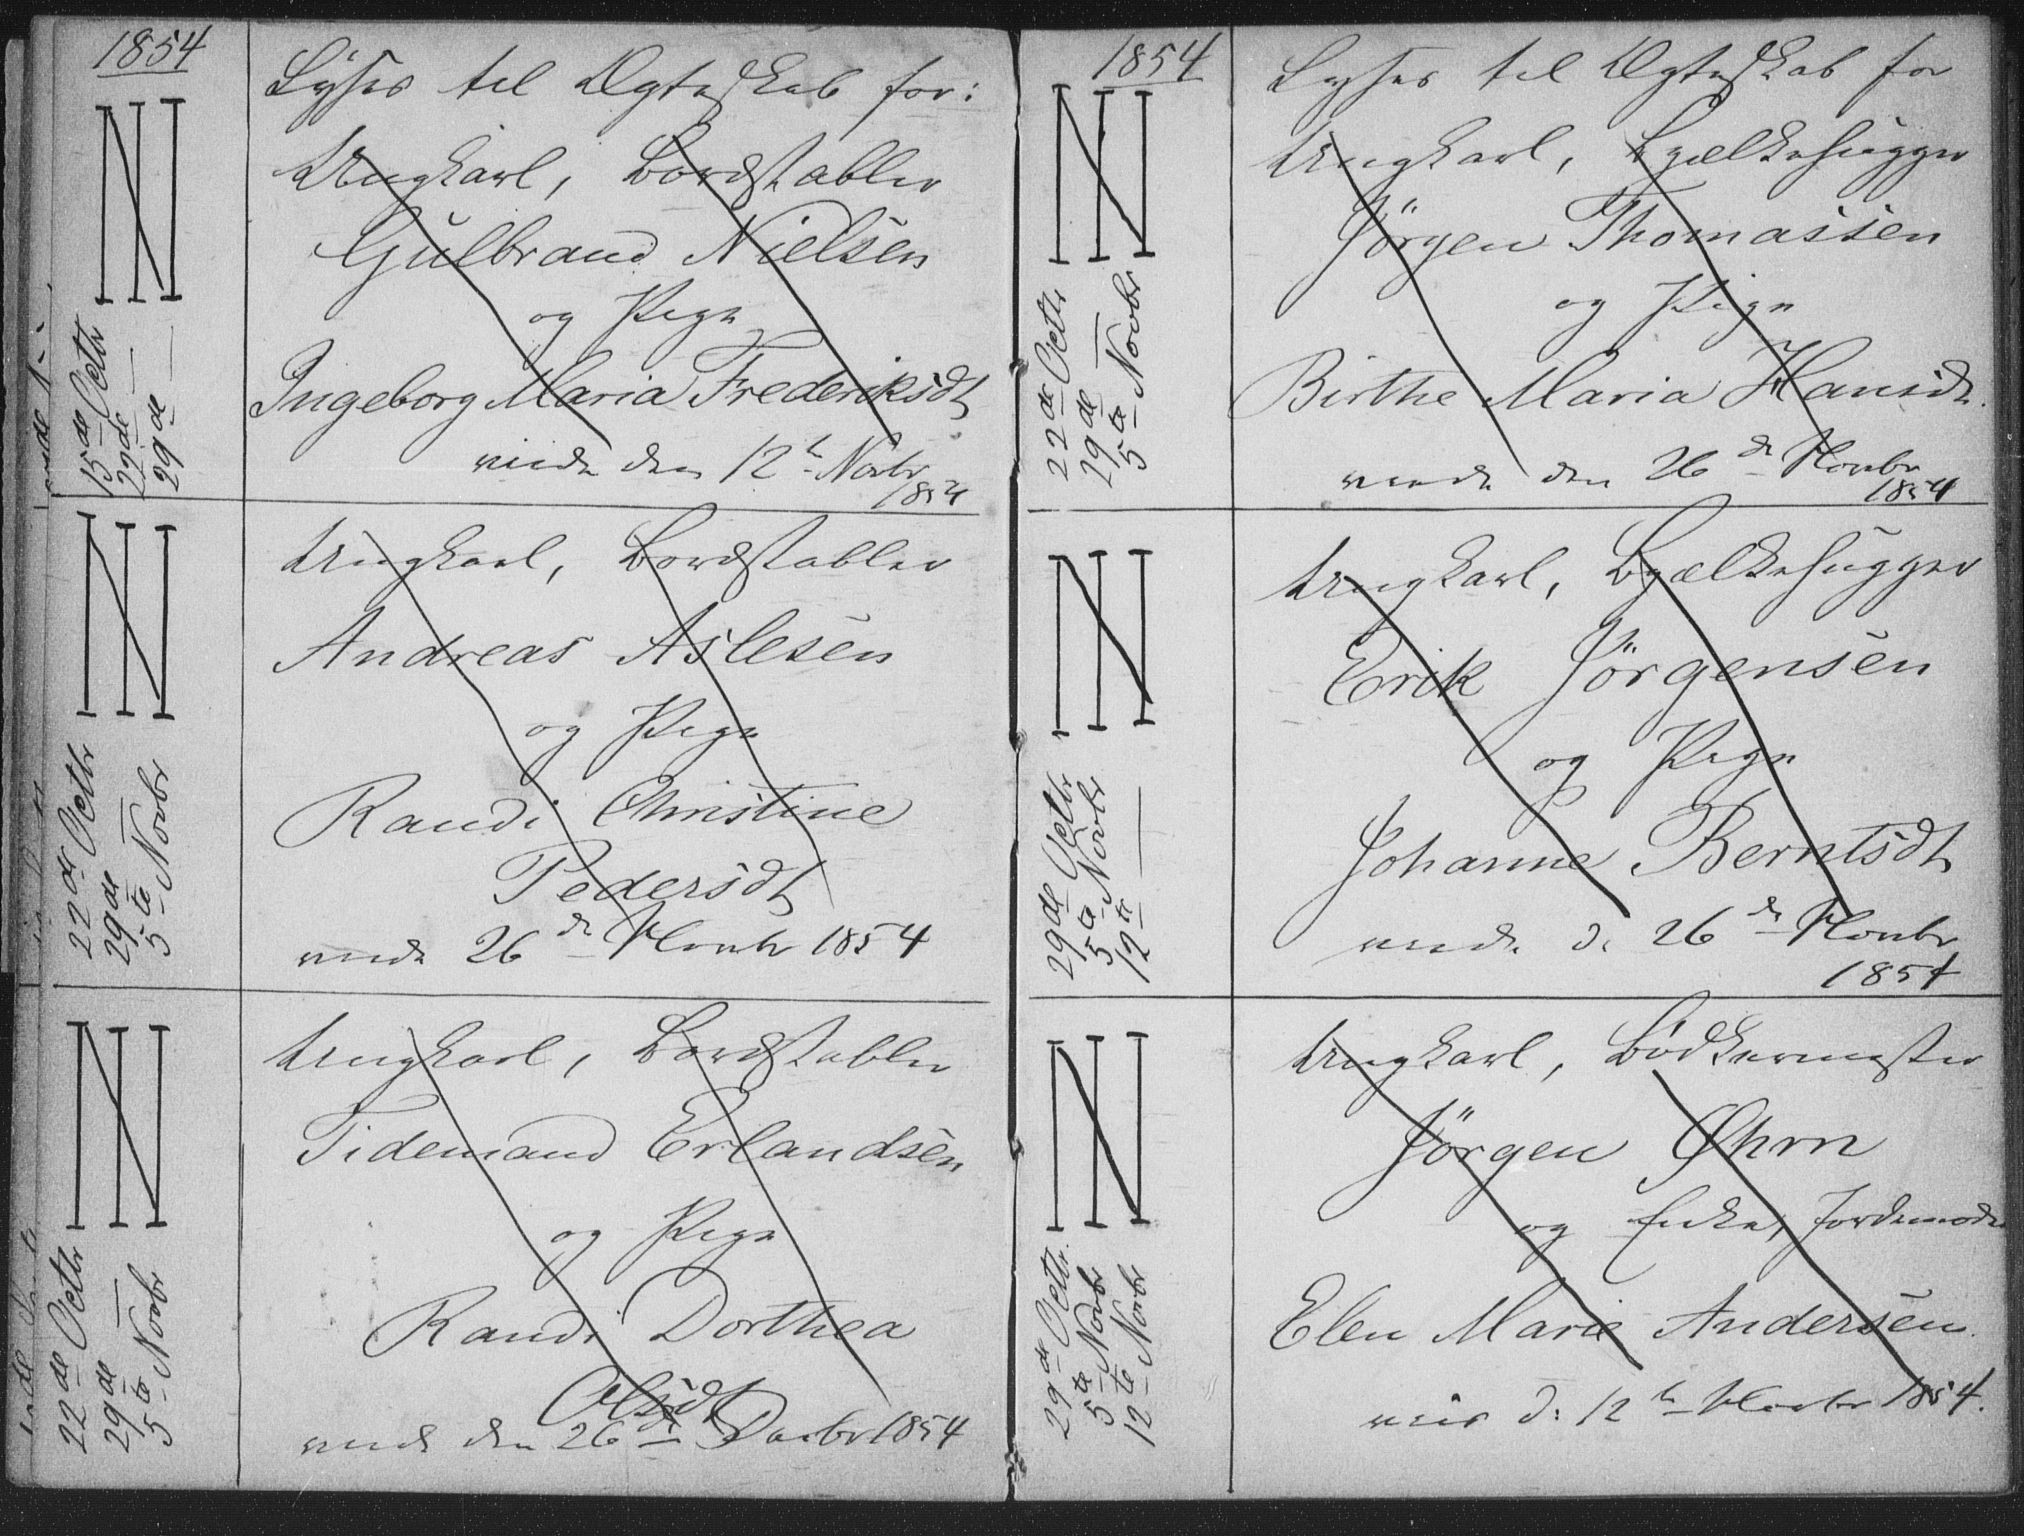 1854
Lyses til Ægteskab for:
Ungkarl, Bordstabler
Gulbrand Nielsen
og Pige
Ingeborg Maria Frederiksdt
viede den 12te Novbr
1854
15de Octbr
22de —
29de —
Ungkarl, Bordstabler
Andreas Aslesen
og Pige
Randi Christine
Pedersdt
viede 26de Novbr 1854
22de Octbr
29de —
5te Novbr
Ungkarl, Bordstabler
Tidemand Erlandsen
og Pige
Randi Dorthea
Olsdt
viede den 26de Decbr 1854
22de Octbr
29de —
5te Novbr
1854
Lyses til Ægteskab for
Ungkarl, Bjælkehugger
Jörgen Thomassen
og Pige
Birthe Maria Hansdt.
viede den 26de Novbr
1854
22de Octbr
29de —
5te Novbr
Ungkarl, Bjælkehugger
Erik Jörgensen
og Pige
Johanne Berntsdt
viede d. 26de Novbr
1854
29de Octbr
5te Novbr
12te —
Ungkarl, Bödkermester
Jörgen Øhrn
og Enke, Jordemoder
Elen Marie Andersen.
vies d: 12te Novbr 1854.
29de Octbr.
5te Novbr
12te Novbr